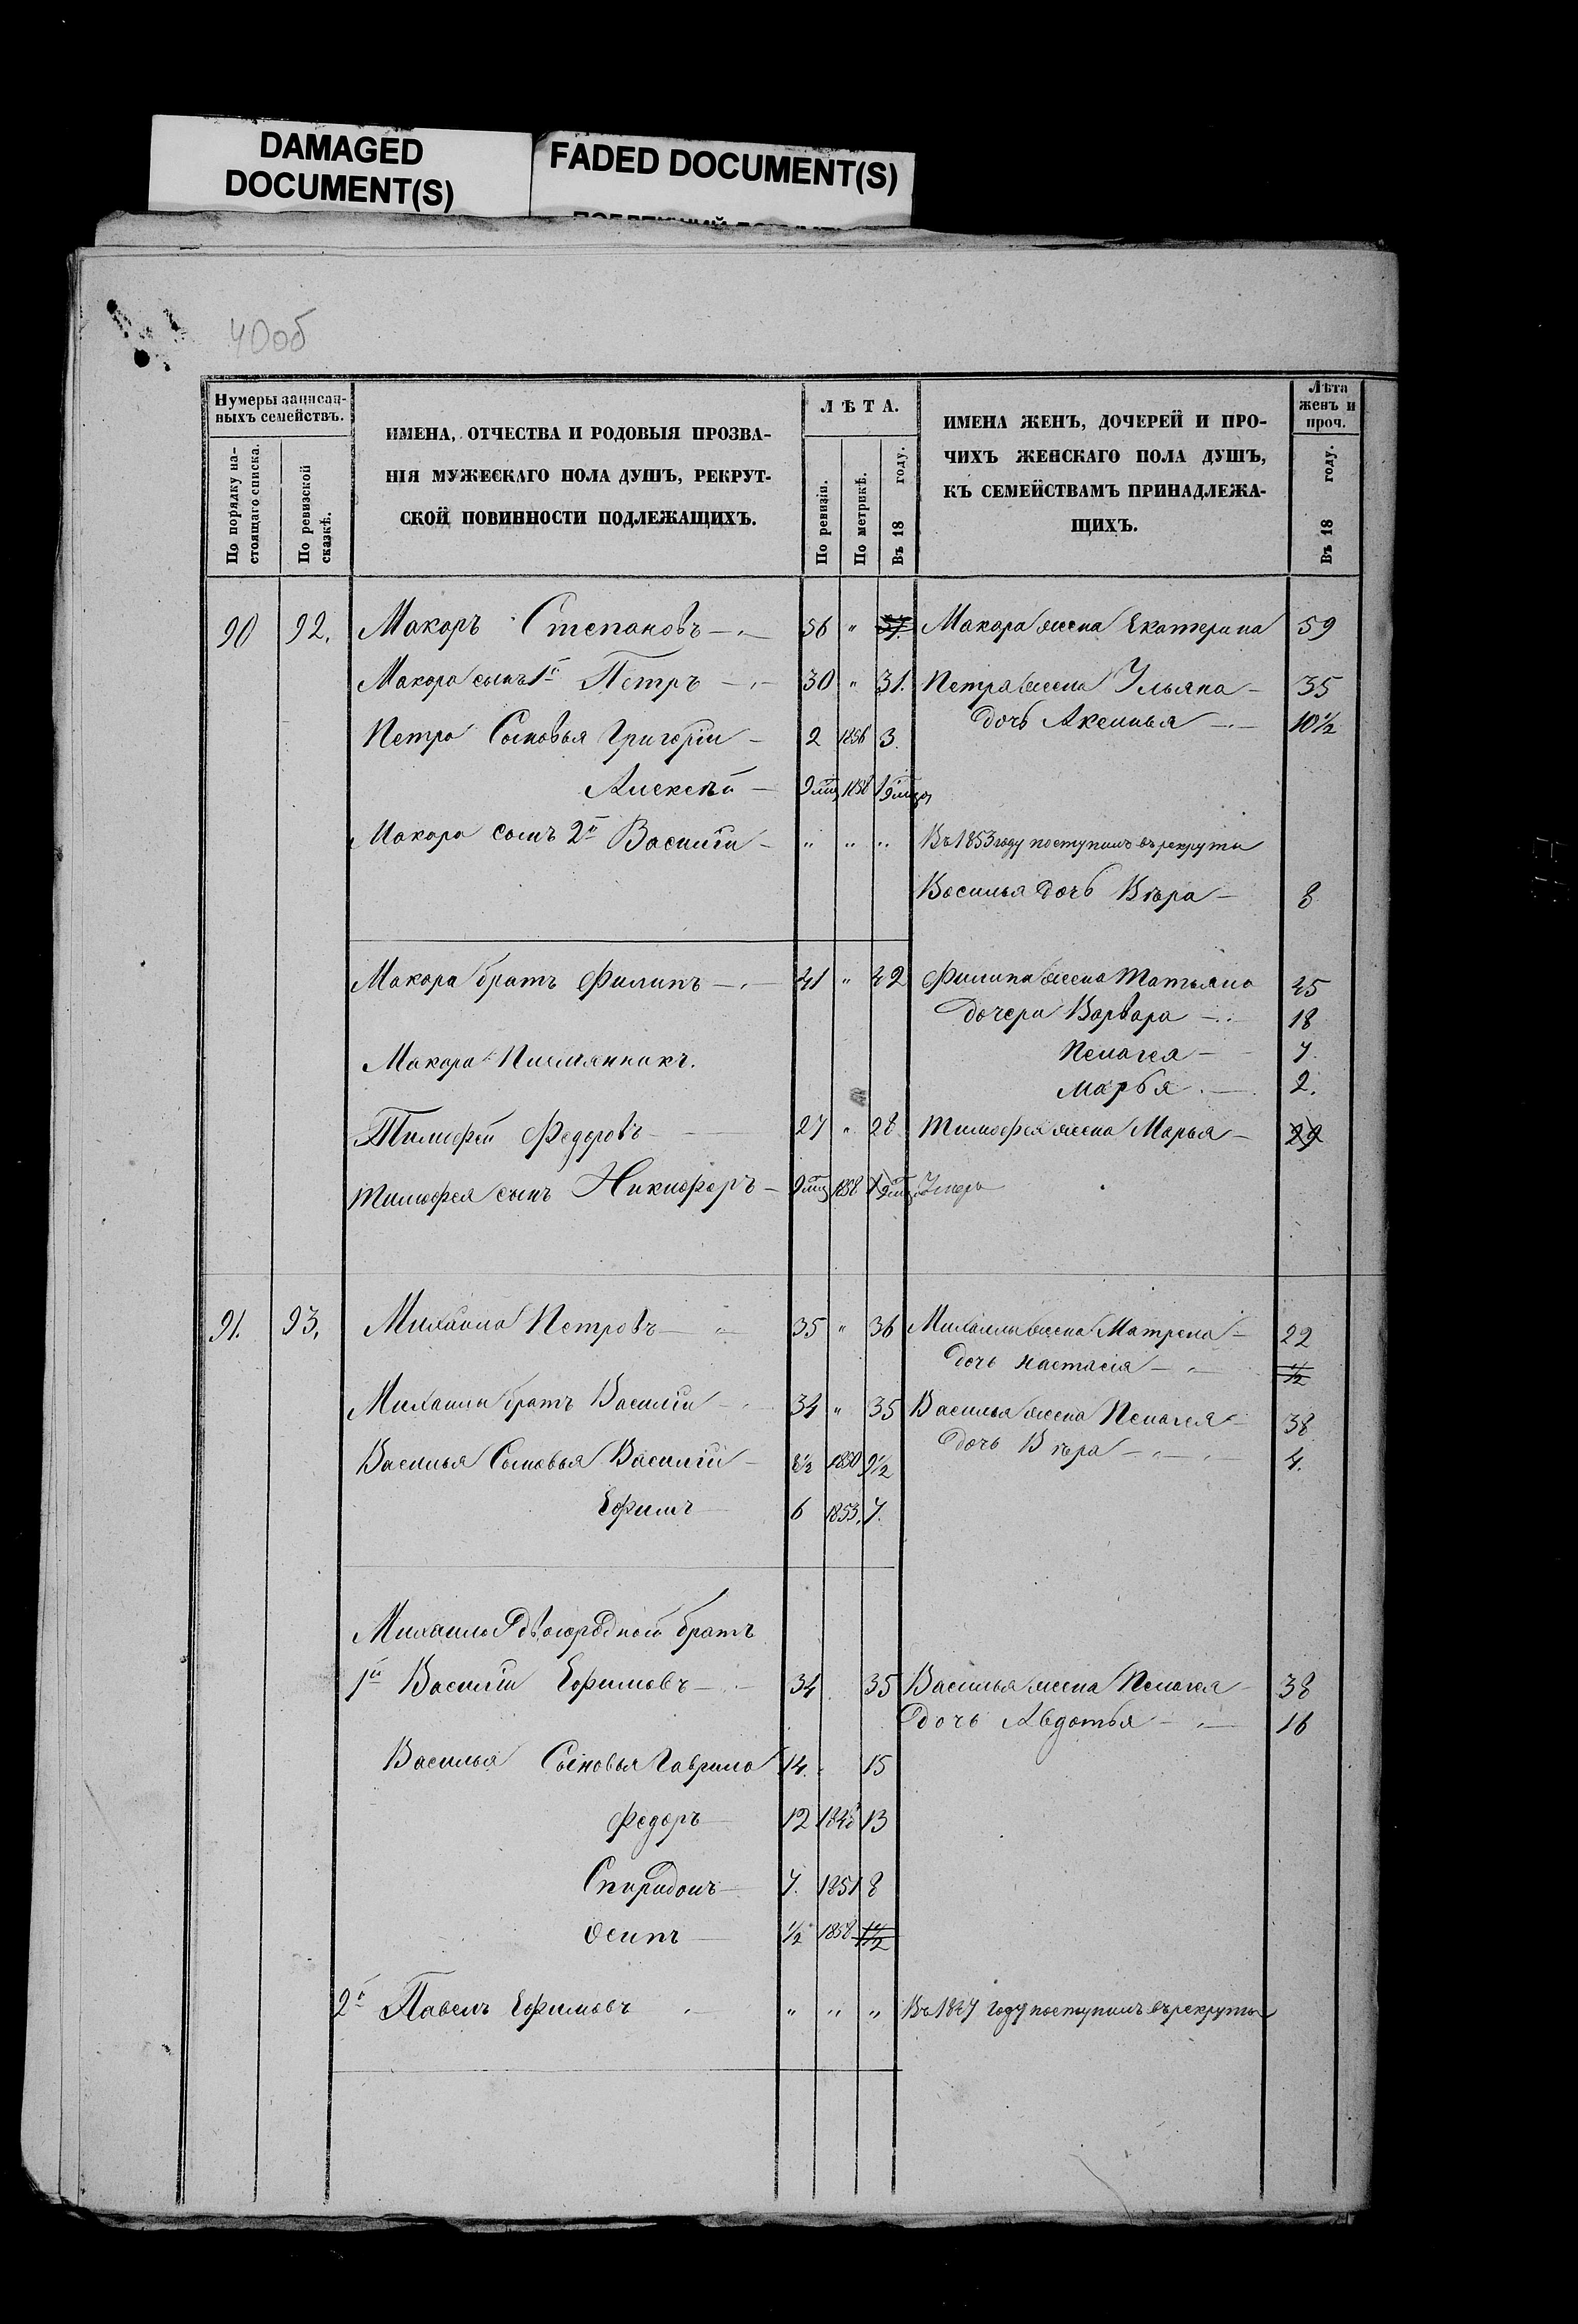 DAMAGED
DOCUMENT(S)
FADED DOCUMENT(S)
40об
Нумеры записан-
ныхъ семействъ.
По порядку на-
стоящаго списка.
По ревизской
сказкѣ.
ИМЕНА, ОТЧЕСТВА И РОДОВЫЯ ПРОЗВА-
НІЯ МУЖЕСКАГО ПОЛА ДУШЪ, РЕКРУТ-
СКОЙ ПОВИННОСТИ ПОДЛЕЖАЩИХЪ.
ЛѢТА.
По ревизіи.
По метрикѣ.
Въ 18 году.
ИМЕНА ЖЕНЪ, ДОЧЕРЕЙ И ПРО-
ЧИХЪ ЖЕНСКАГО ПОЛА ДУШЪ,
КЪ СЕМЕЙСТВАМЪ ПРИНАДЛЕЖА-
ЩИХЪ.
Лѣта
женъ и
проч.
Въ 18 году.
90 92. Макоръ Степановъ 56 " 57 Макора жена Екатерина 59
Макора сынъ 1й Петръ 30 " 31. Петра жена Ульяна 35
дочь Аксинья 10½
Петра Сыновья Григорій 2 1856 3.
Алексѣй 9 мц 1858 1 9 мцъ
Макора сынъ 2й Василій " " " Въ 1853 году поступилъ въ рекруты
Василья дочь Вѣра 8
Макора братъ Филипъ 41 " 42 Филипа жена Татьяна 45
дочери Варвара 18
Пелагея 7.
Марья 2.
Макора Племянникъ.
Тимофей Федоровъ 27 " 28 Тимофея жена Марья 29
Тимофея сынъ Никифоръ 9 мц 1858 1 9 мц Умеръ
91. 93. Михаила Петровъ 35 " 36 Михаилы жена Матрена 22
дочь Настасія ½
Михаилы братъ Василій 34 " 35 Василья жена Пелагея 38
дочь Вѣра 4.
Василья Сыновья Василій 8½ 1850 9½
Ефимъ 6 1853. 7.
Михаилы двоюродной братъ
1й Василій Ефимовъ 34 35 Василья жена Пелагея 38
дочь Авдотья 16
Василья Сыновья Гаврила 14. 15
Федоръ 12 13
Спиридонъ 7. 1851 8
Осипъ ½ 1858 1½
2й Павелъ Ефимовъ " " " Въ 1847 году поступилъ въ рекруты